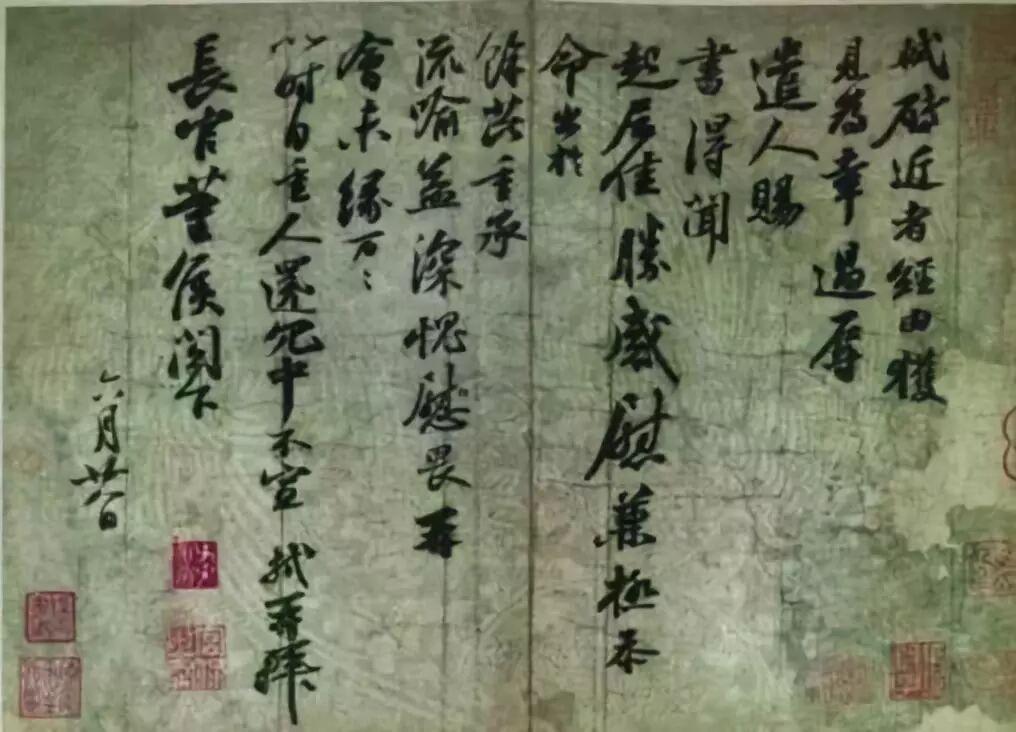 軾啓近者經由獲
見為幸過辱
遣人賜
書得聞
起居佳勝感慰兼極忝
命出於
餘芘重承
流喻益深愧畏再
會未緣万〻
以時自重人還冗中不宣 軾再拜
長官董侯閣下
六月廿八日